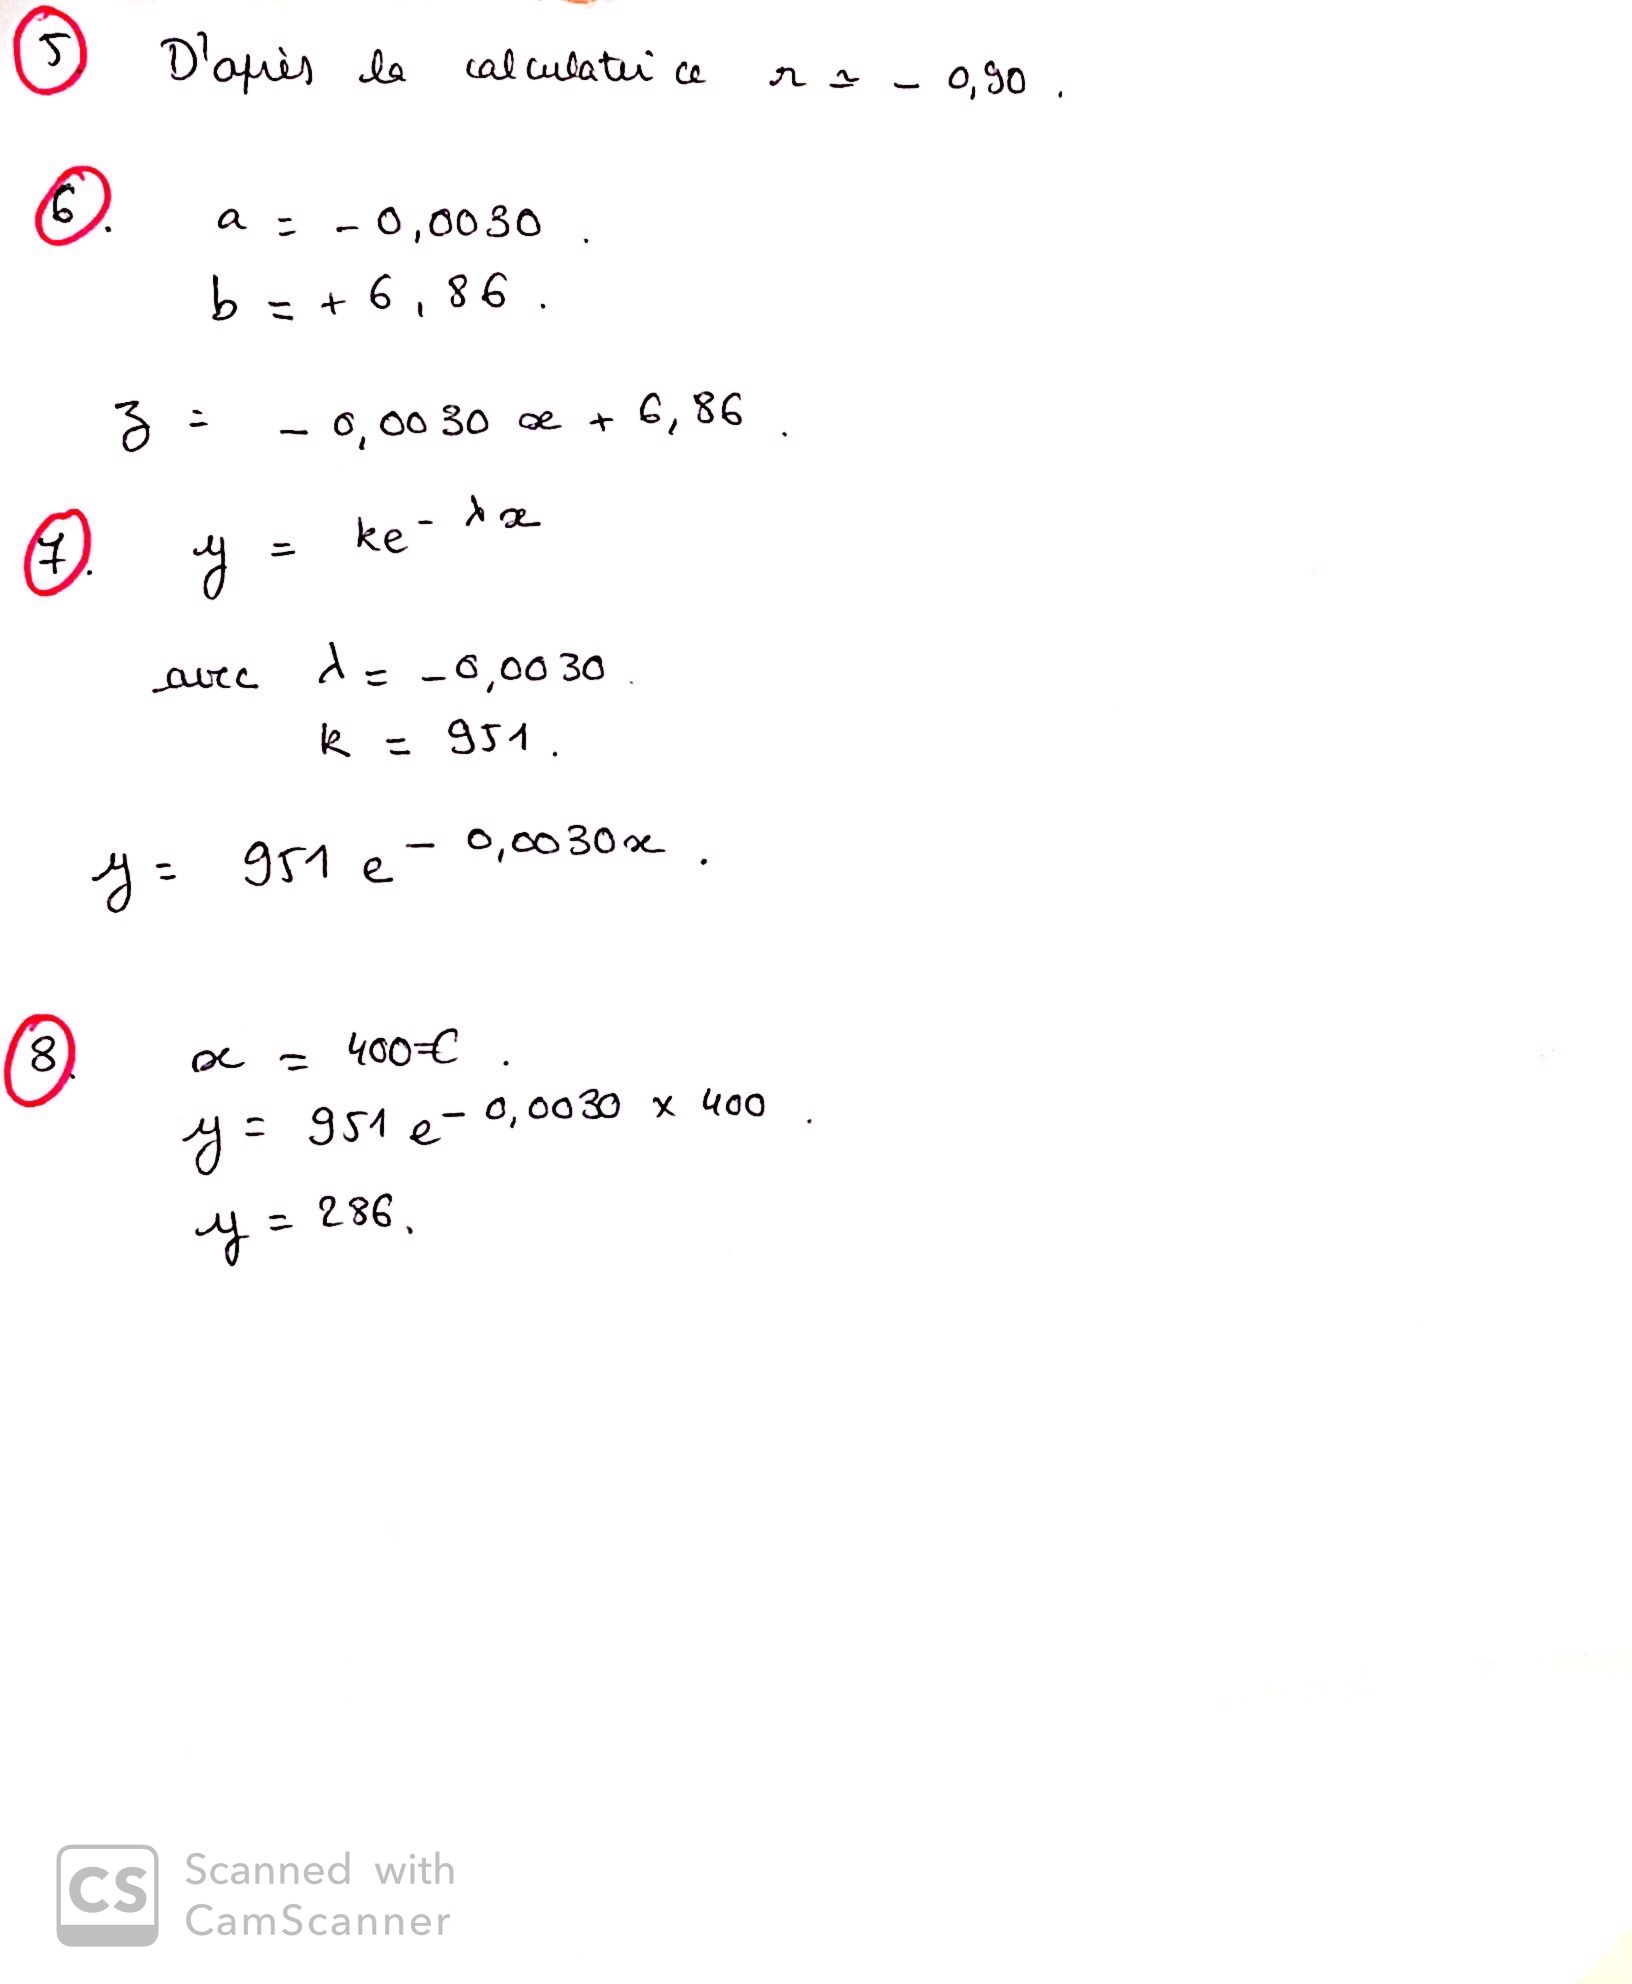 5 D'après la calculatrice r ≃ - 0,90 .
6. a = - 0,0030 .
b = + 6,86 .
z = - 0,0030 x + 6,86 .
7. y = ke^- λx
avec λ = - 0,0030 .
k = 951 .
y = 951 e^- 0,0030x .
8. x = 400€ .
y = 951 e^- 0,0030 x 400 .
y = 286 .
CS Scanned with
CamScanner